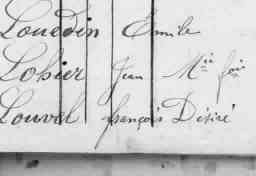 Louedin Émile
Lohier Jean Mie
Louvel François Désiré